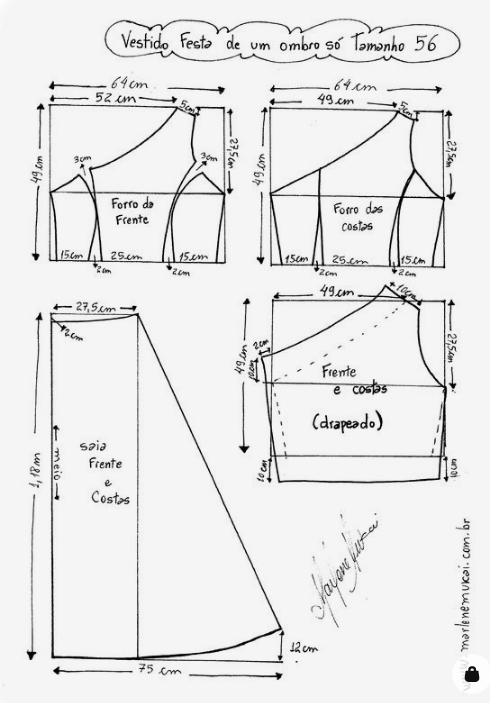 Vestido Festa de um ombro só Tamanho 56
64cm
52 cm
5cm
49cm
27,5cm
3cm
3cm
Forro da
Frente
15cm
25cm
15cm
2cm
2cm
64cm
49cm
5cm
49cm
27,5cm
Forro das
costas
15cm
25cm
15cm
2cm
2cm
27,5cm
2cm
1,18m
meio
saia
Frente
e
Costas
12cm
75 cm
49cm
10cm
2cm
49cm
10cm
27,5cm
Frente
e costas
(drapeado)
10cm
10cm
Marlene Mukai
marlenemukai.com.br